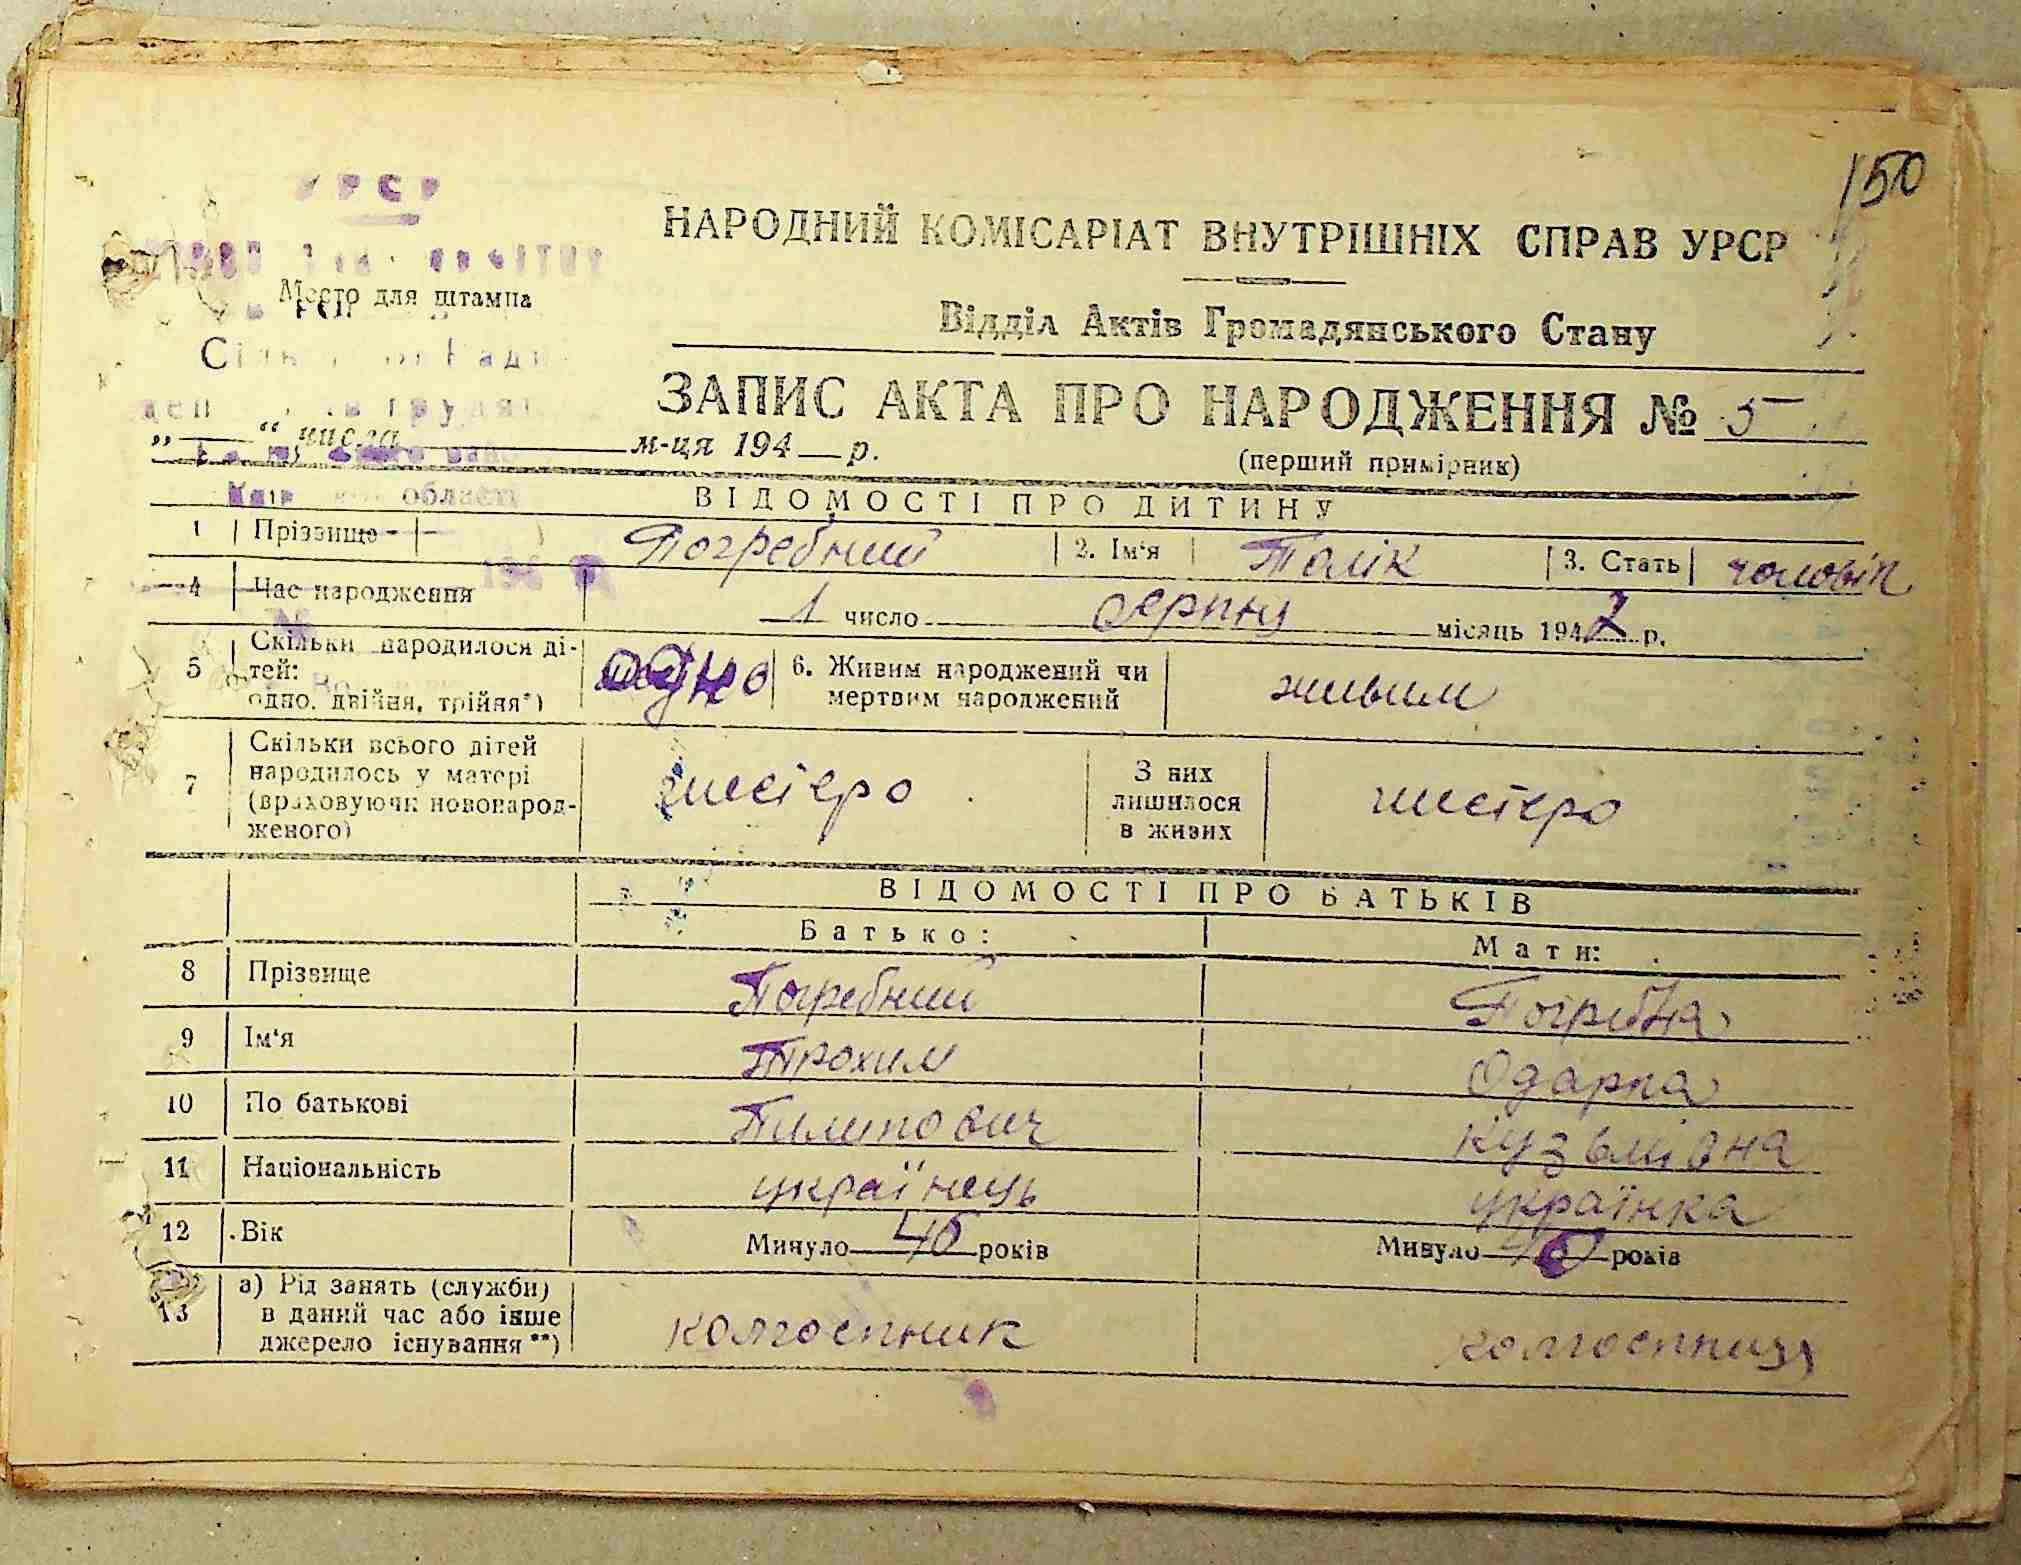 150
УРСР
НАРОДНИЙ КОМІСАРІАТ ВНУТРІШНІХ СПРАВ УРСР
Место для штампа
Відділ Актів Громадянського Стану
ЗАПИС АКТА ПРО НАРОДЖЕННЯ № 5
„ — “ числа м-ця 194 р.
(перший примірник)
області
ВІДОМОСТІ ПРО ДИТИНУ
1 Прізвище Погребний 2. Ім'я Толік 3. Стать чоловік
4 Час народження 1 число серпня місяць 1942 р.
5 Скільки народилося ді-
тей:
одно, двійня, трійня*) одно
6. Живим народжений чи
мертвим народжений живим
7 Скільки всього дітей
народилось у матері
(враховуючи новонарод-
женого) шестеро
З них
лишилося
в живих шестеро
ВІДОМОСТІ ПРО БАТЬКІВ
Батько: Мати:
8 Прізвище Погребний Погребна
9 Ім'я Трохим Одарка
10 По батькові Пилипович Кузьмівна
11 Національність українець українка
12 Вік Минуло 46 років Минуло років
13 а) Рід занять (службы)
в даний час або інше
джерело існування**) колгоспник колгоспниця